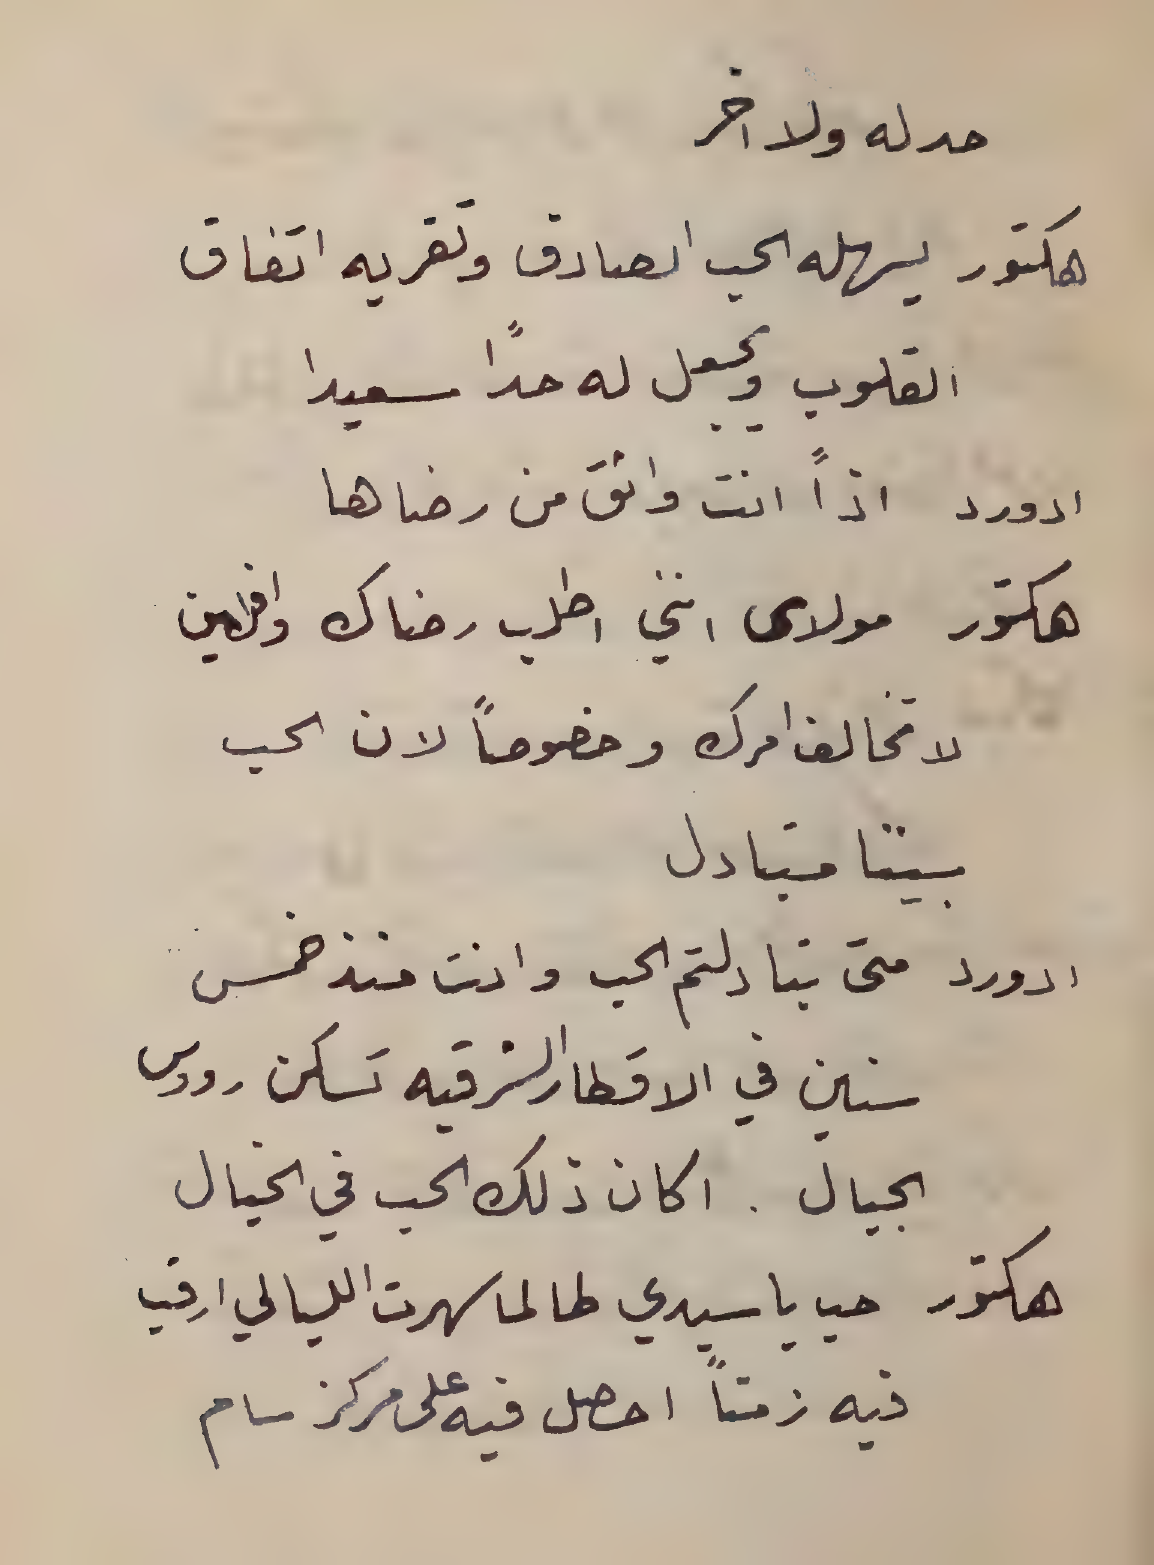 حد له ولا اخر
هكتور يسهله الحب الصادق وتقربه اتفاق
القلوب ويجعل له حدًا سعيدا
ادورد اذاً انت واثق من رضاها
هكتور مولاى اننى اطلب رضاك وافلين
لا تخالف امرك وخصوصاً لان الحب
بيننا متبادل
ادورد متى تبادلتم الحب وانت منذ خمس
سنين في الاقطار الشرقيه تسكن رووس
الجبال . اكان ذلك الحب في الخيال
هكتور حب يا سيدي طالما سهرت الليالي ارقب
فيه زمناً احصل فيه على مركز سام